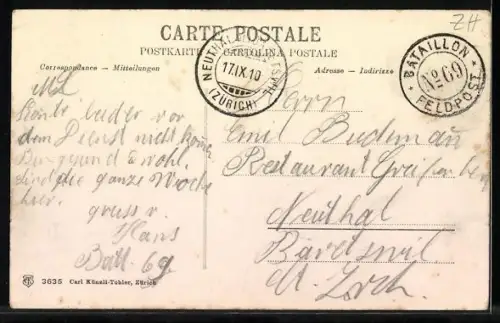 ZH
CARTE POSTALE
POSTKARTE CARTOLINA POSTALE
Correspondance - Mitteilungen
Adresse - Indirizzo
NEUTHAL
17.IX.10
(ZÜRICH)
BATAILLON
No 69
FELDPOST
Konte leider vor
dem Dienst nicht
Bin gsund & wohl.
Sind die ganze Woche
hier.
gruss v.
Hans
Batt. 69
Herrn
Emil
Restaurant Greifenberg
Neuthal
Bäretswil
Kt. Zrch.
3635 Carl Künzli-Tobler, Zürich